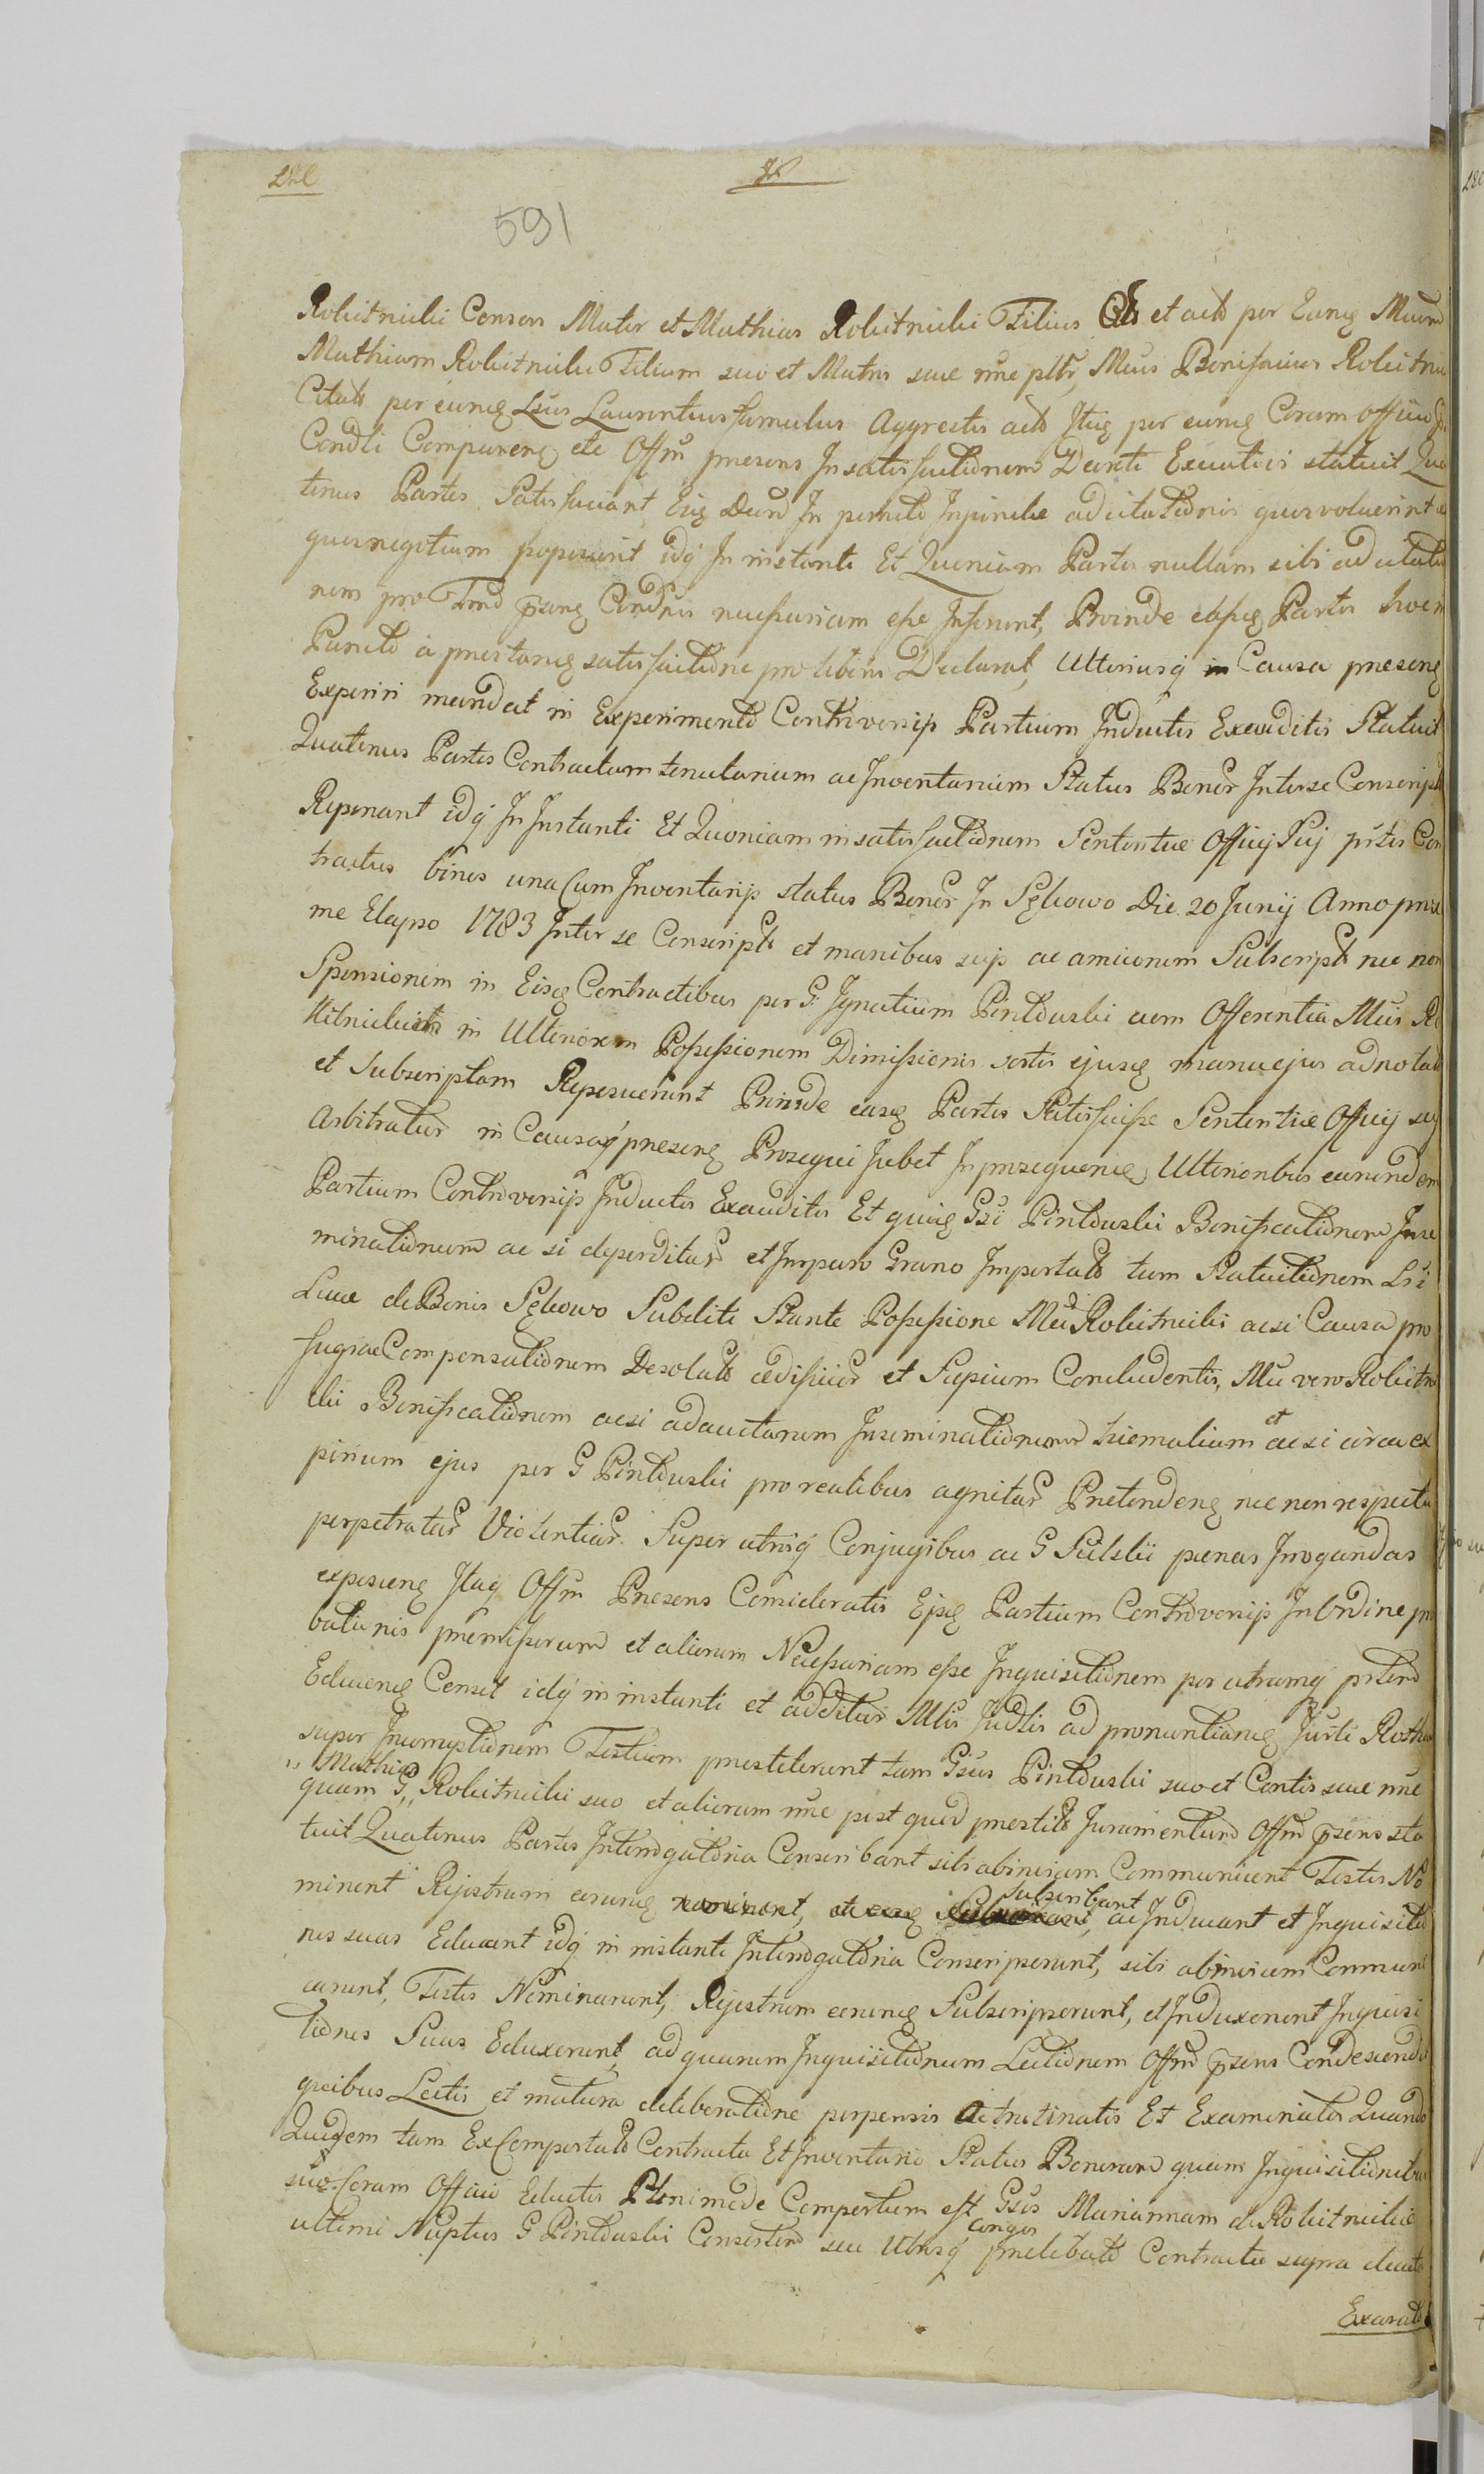 591
Rokitnicki Consors Mater et Mathias Rokitnicki Filius Citi et acto per Eund Mum
Mathiam Rokitnicki Filium suo et Matris suae nne pltr, Mcus Bonifacius Rokitni
Citato per eund Lsus Laurentius famulus Aggrestis acto Itaq per eund Coram officio
Condli Comparend ete Offm praesens In satisfactionem Decreti Exeutivi statuit Qua
tenus Partes Satisfaciant Eisq Decreto In puncto Injunctae adcitationis quos voluerint
quos negotium poposcerit idq In instanti Et Quoniam Partes nullam sibi ad citatio
nem pro Termino psenq Condnis necessariam esse Inserunt, Proinde easq Partes hoc in
Puncto a praestanq satisfactione pro liberis Declarat, Ulteriusq in Causa praesenq
Experiri mandat in Experimento Controversijs Partium Inductis Exauditis Statuit
Quatenus Partes Contractum tenutarium ac Inventarium Status Bonor Inter se Conscripta
Reponant idq In Instanti Et Quoniam in satisfactionem Sententiae Officij Sui prtes Con
tractus binos una Cum Inventarijs status Bonor In Sękowo Die 20 Junij Anno proxi
me Elapso 1783 Inter se Conscripto et manibus suis ac amicorum Subscripto nec non
Sponsionem in Eisq Contractibus per G: Ignatium Pintowski cum Offerentia Mcis Ro
kitnickich in Ulteriorem Possessionem Dimissionis sortis ejusq manu ejus adnotato
et Subscriptam Reposuerunt Proinde easq Partes Satisfecisse Sententiae Officij sui
Arbitratur in Causaq praesenq Prosequi Jubet In prosequendo Ulterioribus earundem
Partium Controversijs Inductis Exauditis Et quia Gsi Pintowski Bonificationem Inse
minationum ac si deperditar et Impuro Grano Importato tum Statuitionem Lsi
Lucae de Bonis Sękowo Subditi Stante Possessione Mci Rokitnicki acsi Causa pro
fugiae Compensationem Desolato aedificior et Sepium Concludentis, Mci vero Rokitni
cki Bonificationem acsi adauctarum Inseminationum hiemalium et acsi circa ex
pirium ejus per G Pintowski pro realibus agnitar Praetendenq nec non respectu
perpetratar Violentiar Super utrisq Conjugibus ac G Sulskii poenas Irrogandas
exposcenq Itaq Offm Praesens Consideratis Ejsq Partium Controversijs In Ordine pro
bationis praemissorum et aliorum Necessariam esse Inquisitionem per utramq prtem
Educenq Censet idq in instanti et additur Mlis Judlis ad pronuntianq Jurti Rotha
super Incorruptionem Testium praestiterunt tam Gsus Pintowski suo et Contis suae nne
quam G " Mathias Rokitnicki suo et aliorum nne post quod praestito Juramentum Offm psens sta
tuit Quatenus Partes Interrogatoria Conscribant sibi abinvicem Communicent Testes No
minent Rejestrum eorumq subscribant, ac Inducant et Inquisitio
nes suas Educant idq in instanti Interrogatoria Conscripserunt, sibi abinvicem Communi
carunt, Testes Nominarunt, Rejestrum eorumq Subscripserunt, et Induxerunt Inquisi
tiones Suas Eduxerunt, ad quarum Inquisitionum Lectionem Offm psens Condescendit
quibus Lectis et matura deliberatione perpensis Actrutinatis Et Examinatis Quando
Quidem tam Ex Comportato Contractu Et Inventario Status Bonorum quam Inquisitionibus
suis Coram Officio Eductis Plenimode Compertum est Gsos Mariannam de Rokitnickie
ultimi Nuptus G Pintowski Consortem seu Utrosq conges praelibato Contractu supra deuto
Exarato